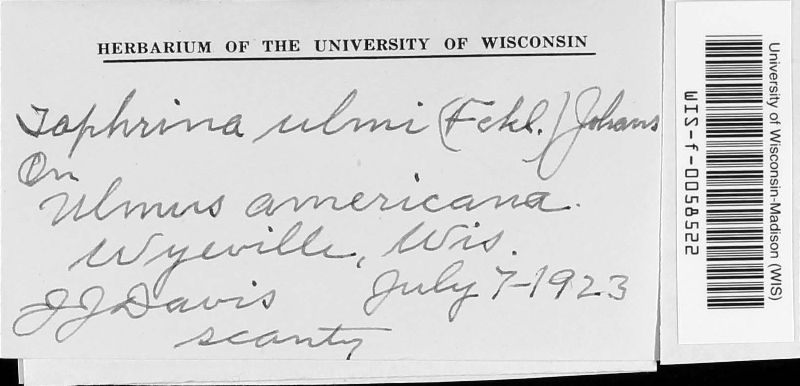 HERBARIUM OF THE UNIVERSITY OF WISCONSIN
Taphrina ulmi (Fckl.) Johans
On
Ulmus americana.
Wyeville, Wis.
JJ Davis July 7-1923
scanty
University of Wisconsin-Madison (WIS)
WIS-f-0058522